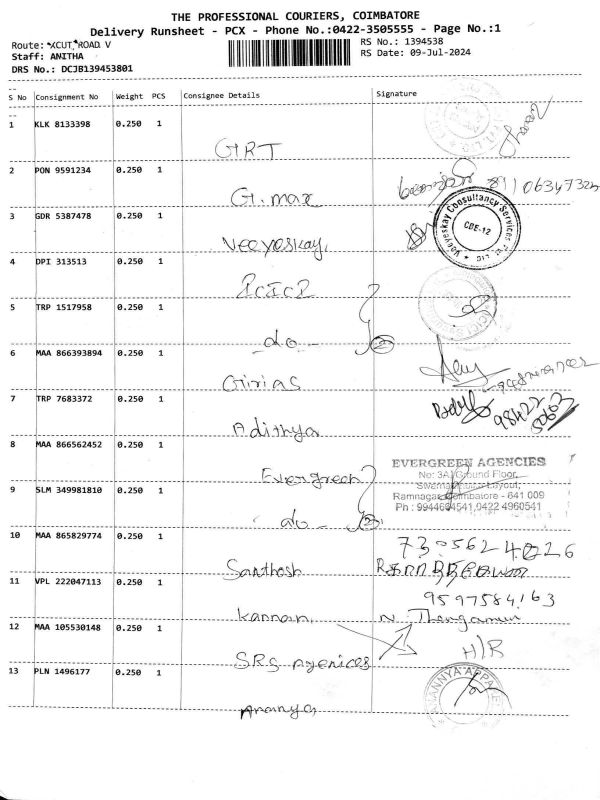 THE PROFESSIONAL COURIERS, COIMBATORE
Delivery Runsheet - PCX - Phone No.:0422-3505555 - Page No.:1
Route: XCUT ROAD V
Staff: ANITHA
DRS No.: DCJB139453801
RS No.: 1394538
RS Date: 09-Jul-2024
S No Consignment No Weight PCS Consignee Details Signature
1 KLK 8133398 0.250 1
GRT
2 PON 9591234 0.250 1
G.max
3 GDR 5387478 0.250 1
Veeyeskay Consultancy Services
CBE-12
Veeyeskay
4 DPI 313513 0.250 1
ICICI
5 TRP 1517958 0.250 1
do
2
6 MAA 866393894 0.250 1
Girias
7 TRP 7683372 0.250 1
98422
Adithya
8 MAA 866562452 0.250 1
EVERGREEN AGENCIES
No: 3A, Ground Floor,
Layout,
Evergreen
9 SLM 349981810 0.250 1
Ramnagar, Coimbatore - 641 009
Ph : 9944694541,0422 4960541
do
2
10 MAA 865829774 0.250 1
7305624026
Santhosh
11 VPL 222047113 0.250 1
9597584163
Kannan
N. Thangamuni
12 MAA 105530148 0.250 1
H/R
SRS Agenices
13 PLN 1496177 0.250 1
Ananya